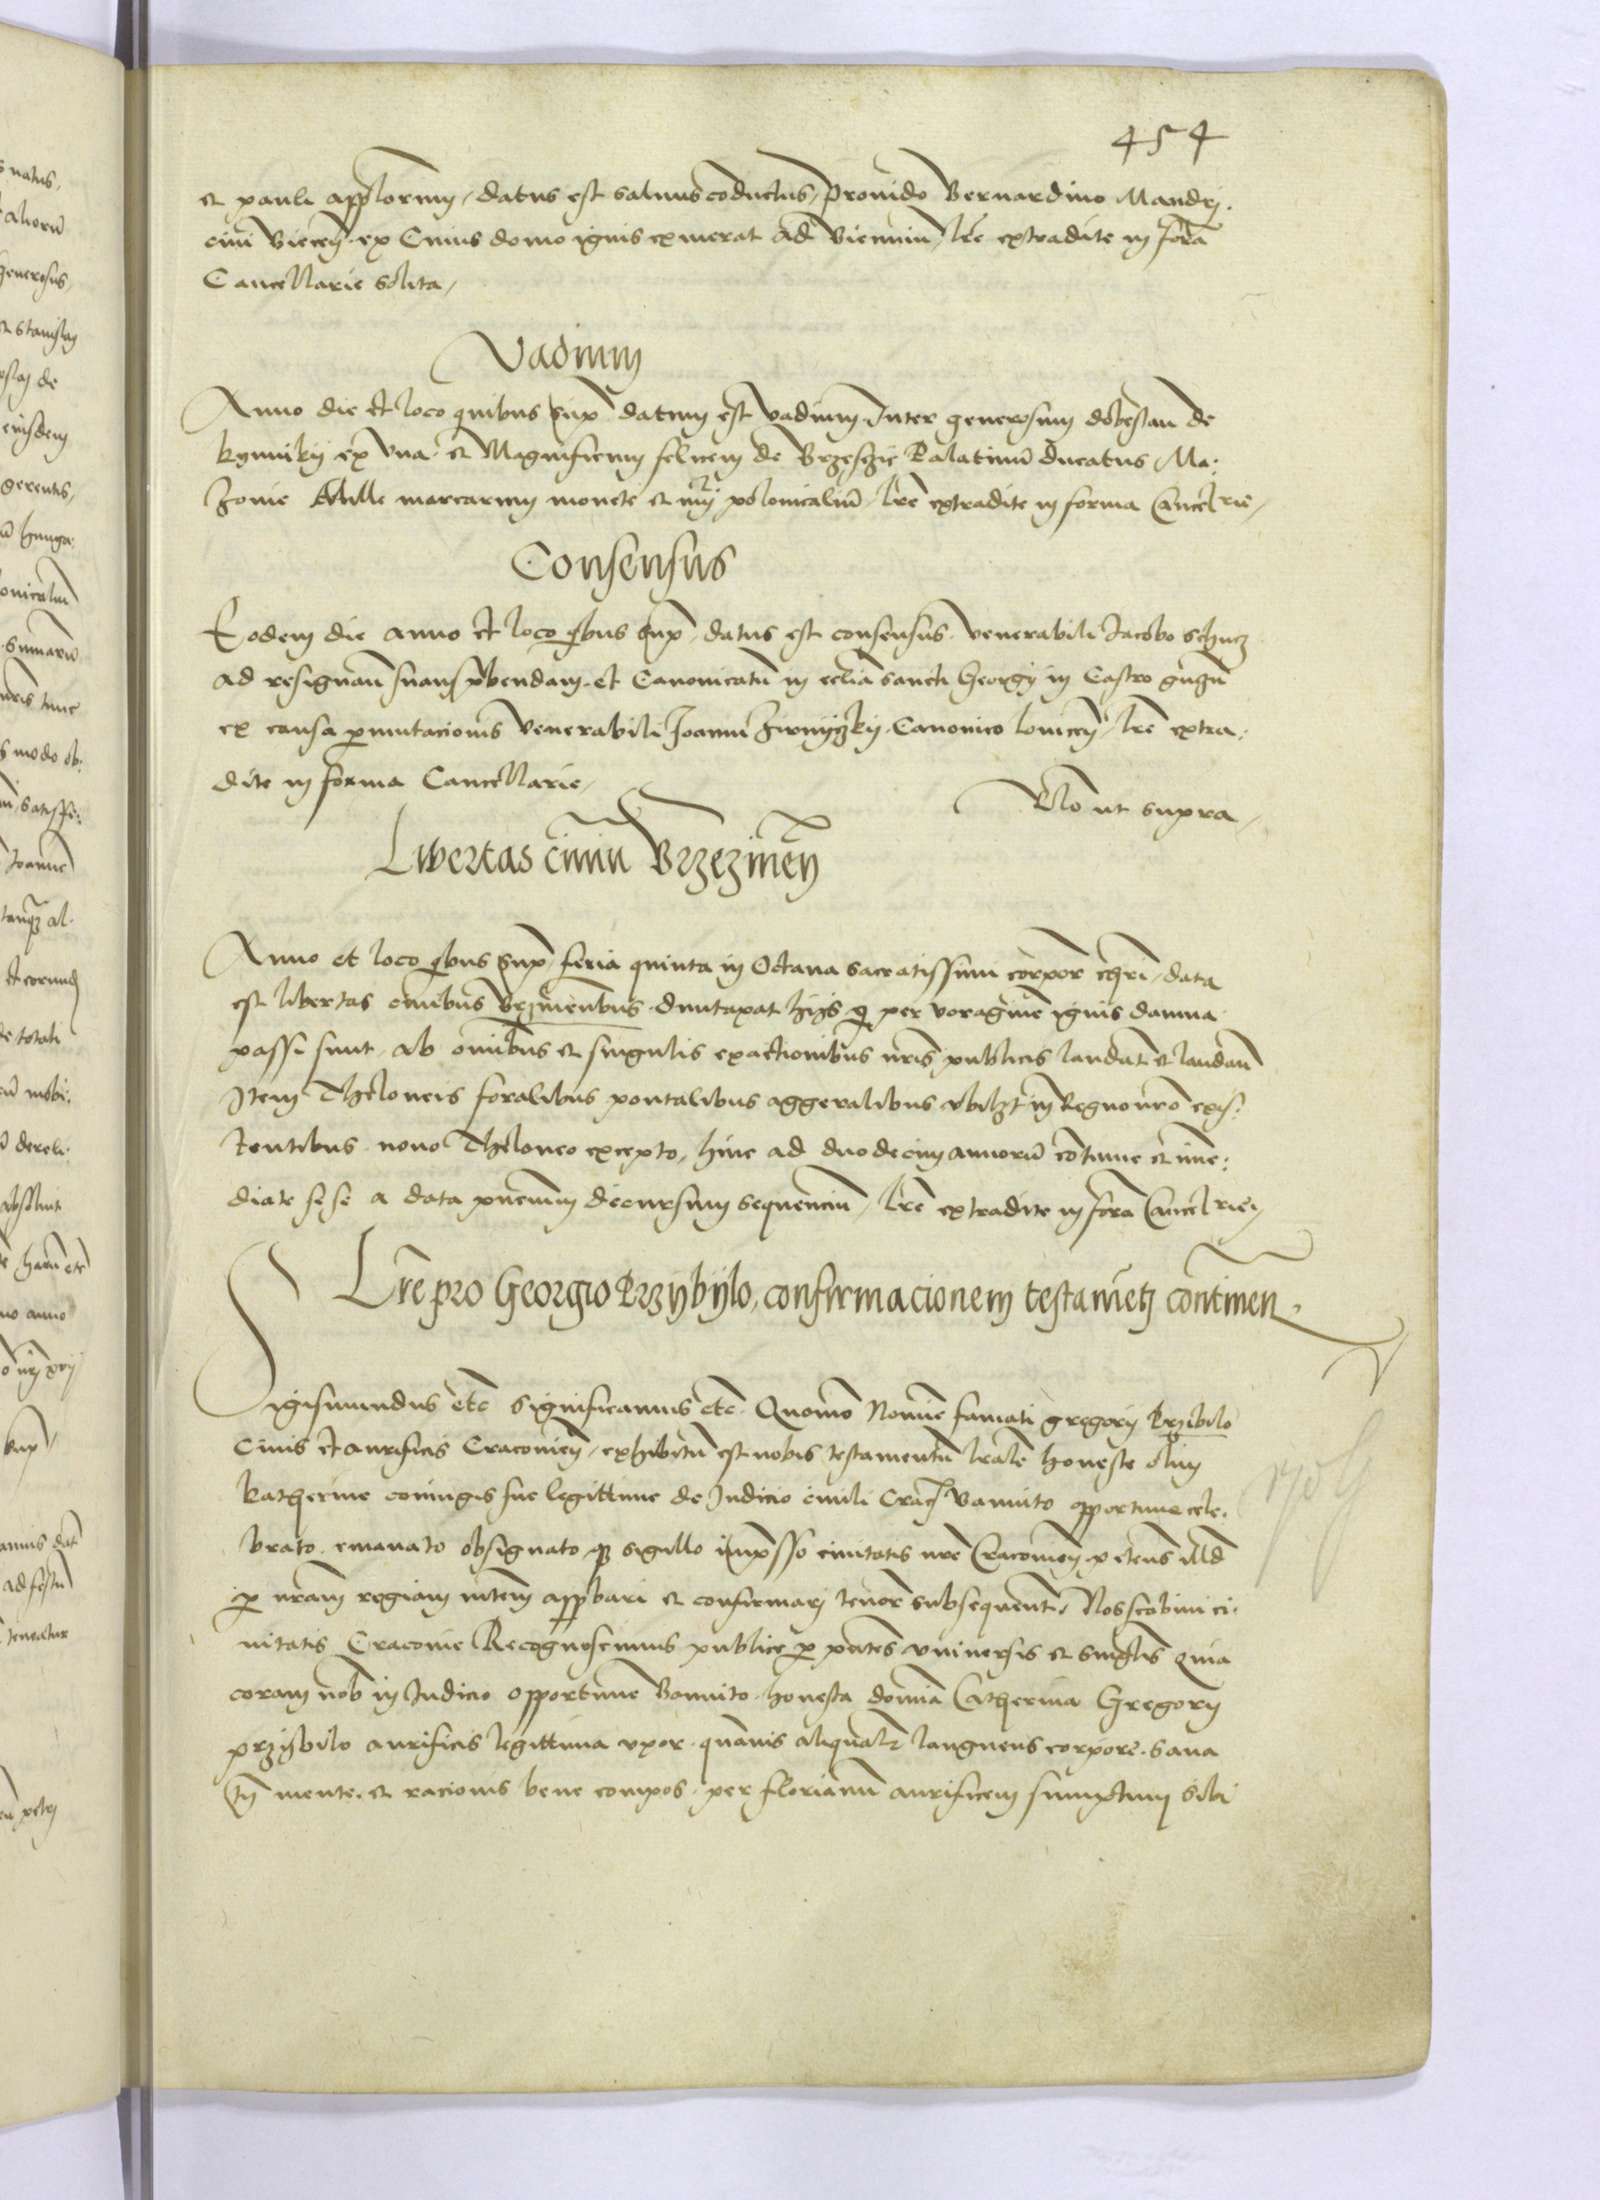 454
et pauli applorum, datus est salvus coductus, Provido Bernardino Mandrij.
civi Biecen ex Cuius domo ignis exiverat ad biennium, lre extradite in fora
Cancellarie solita,
Vadium
Anno die et loco quibus sup datum est vadium Inter generosum dobestan de
et Magnificum felicem de Brzeszie Palatinu ducatus Ma:
zovie Mille marcarum monete et polonicaliu lre extradite in forma Cancelrie,
Consensus
Eodem die anno et loco qbus sup, datus est consensus venerabili Jacobo Schucz
ad resignan suam pbendam et Canonicatu in eclia sancti Georgij in Castro
ex causa pmutacionis Venerabili Joanni Canonico lovicen, lre extra:
dite in forma Cancellarie,
Rlo ut supra,
Libertas civiu Brzezinen
Anno et loco qbus sup feria quinta in Octava sacratissimi corpor chri, data
est libertas civibus duntaxat hijs q per voragine ignis damna
passi sunt, ab omibus et singulis exactionibus nris publicis laudat et laudan
Item Theloneis foralibus pontalibus aggeralibus ubilzt in Regno nro exis:
tentibus novo Theloneo excepto, hinc ad duodecim annoru cotinue et ime:
diate sese a data pntium decursum sequenciu, lre extradite in fora Cancelrie
Lre pro Georgio Przybylo, confirmacionem testametj continen.
Sigismundus etc Significamus etc Quomo Nomie famati gregorij Przibilo
Civis et aurificis Cracovien, exhibitu est nobis testamentu honeste olim
Katherine coniugis sue legittime de Judicio civili Crac banito opportune cele.
brato. emanato obsignato sigillo impsso civitatis nre Cracovien petens
p nram regiam appbari et confirmarj tenor subsequent. Nos scabini ci.
vitatis Cracovie Recognoscimus publice p pntes universis et singlis Quia
coram nob in Judicio opportune Bannito honesta domia Catherina Gregorij
przijbilo aurificis legittima uxor. quavis aliqualr languens corpore. sana
tn mente. et racionis bene compos. per florianu aurificem sumptum sibi